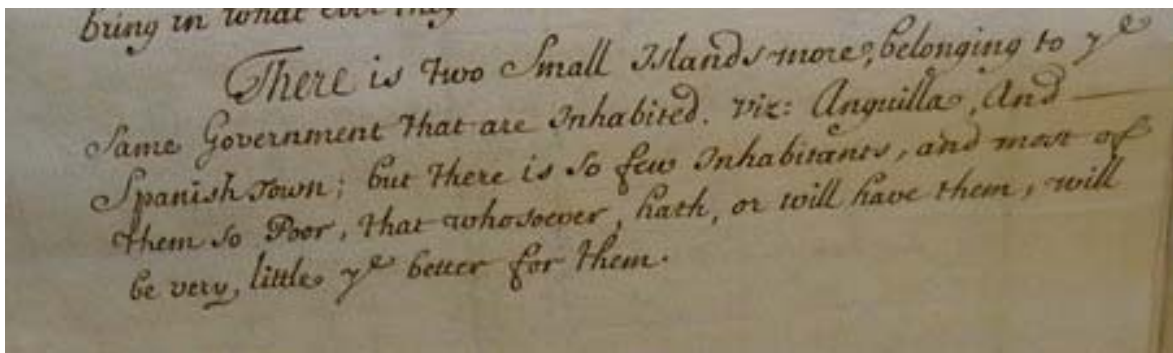 bring in what ever they
There is two Small Islands more, belonging to yᵉ
Same Government that are Inhabited. viz: Anguilla, And
Spanish Town; but there is so few Inhabitants, and most of
them so Poor, that whosoever, hath, or will have them, will
be very, little yᵉ better for them.